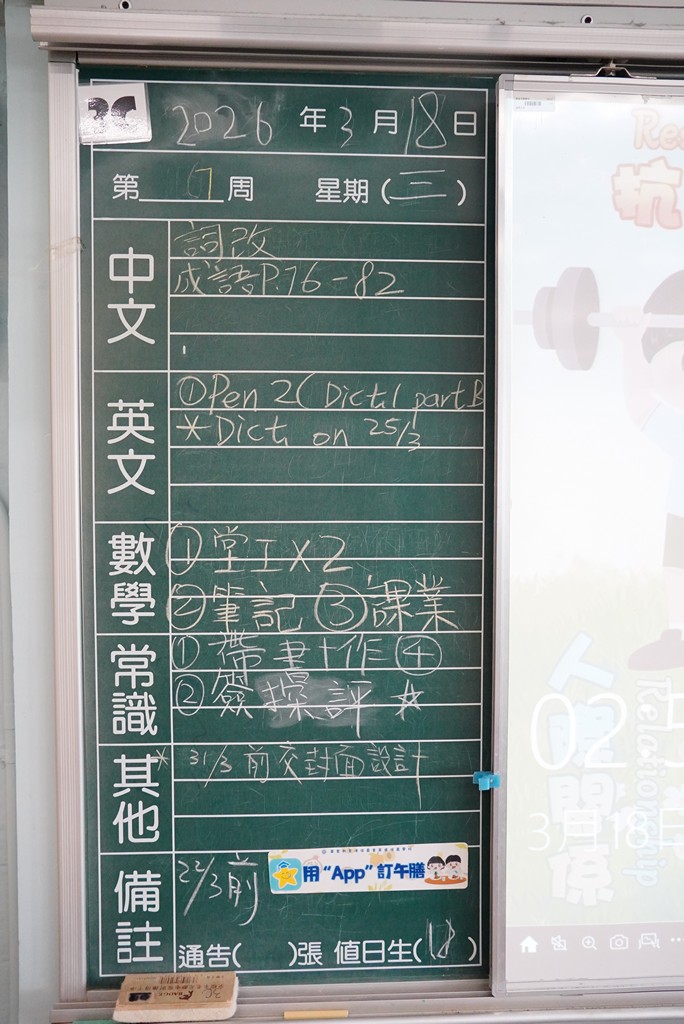 2026 年 3 月 18 日
第 17 周 星期 (三)
中文
詞改
成語P.76-82
英文
①Pen 2( Dict.1 part B
*Dict. on 25/3
數學
①堂工x2
②筆記 ③課業
常識
①帶書+作④
②簽操評☆
其他
* 31/3 前交封面設計
備註
22/3前
用“App”訂午膳
通告( )張 值日生(18)
Re
抗
人際關係
Relationship
02
3月18日